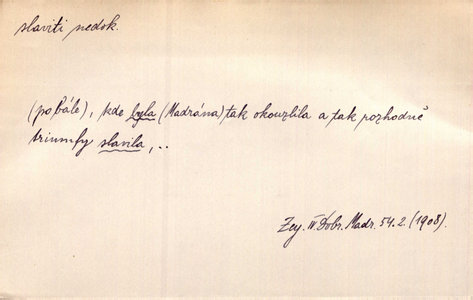 slaviti nedok.
(po bále), kde byla (Madrána) tak okouzlila a tak rozhodně
triumfy slavila,..
Zey. IV. Dobr. Madr. 54.2. (1908).